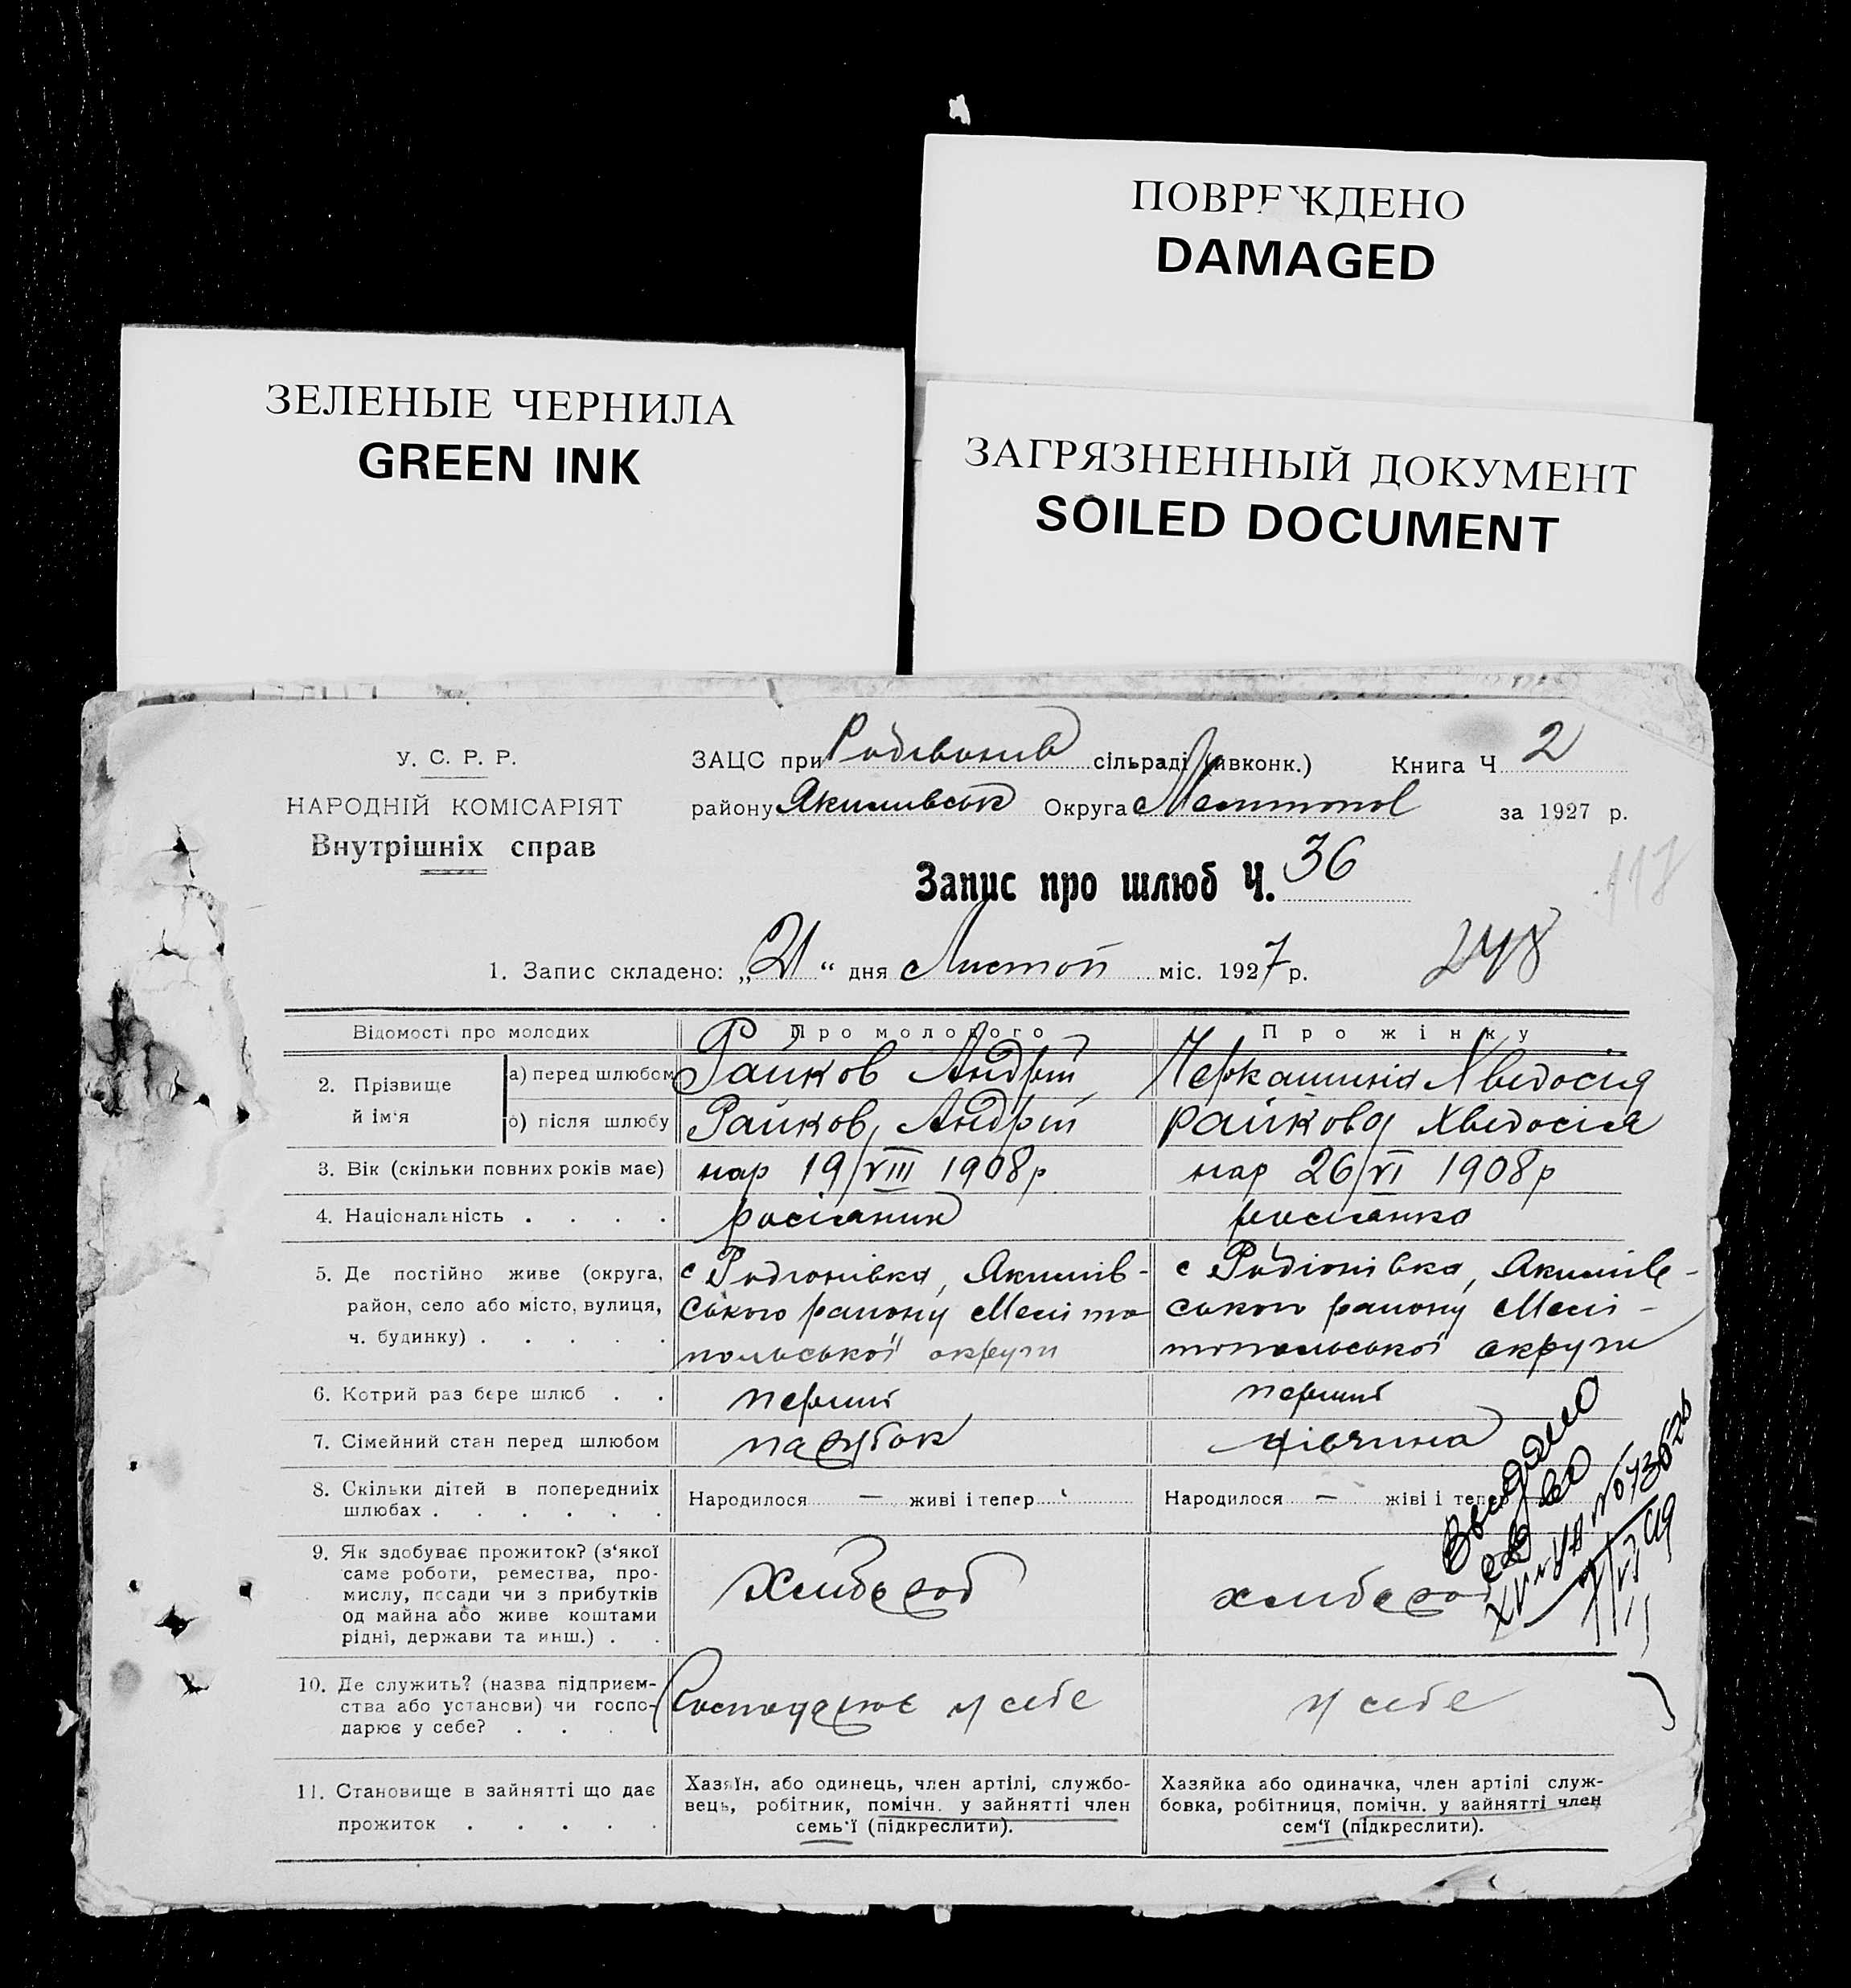 ПОВРЕЖДЕНО
DAMAGED
ЗЕЛЕНЫЕ ЧЕРНИЛА
GREEN INK
ЗАГРЯЗНЕННЫЙ ДОКУМЕНТ
SOILED DOCUMENT
У. С. Р. Р.
НАРОДНІЙ КОМІСАРІЯТ
Внутрішніх справ
ЗАЦС при Родівонів сільраді (Райвконк.) Книга Ч 2
району Якимівськ Округа Мелитопол за 1927 р.
Запис про шлюб Ч. 36
117
1. Запис складено: „21“ дня Листоп міс. 1927 р.
248
Відомості про молодих Про молодого Про жінку
2. Прізвище й ім'я а) перед шлюбом Райков Андрій Черкашинія Хведосія
б) після шлюбу Райков Андрій Райкова Хведосія
3. Вік (скільки повних років має) нар 19/VIII 1908р нар 26/VI 1908р
4. Національність . . . . росіянин росіянка
5. Де постійно живе (округа, с Родіонівка, Якимів- с Родіонівка, Якимів-
район, село або місто, вулиця, ського району Меліто ського району Мелі-
ч. будинку) . . . . . польської округи топольської округи
6. Котрий раз бере шлюб . . перший перший
7. Сімейний стан перед шлюбом парубок дівчина
8. Скільки дітей в попередниіх
шлюбах . . . . . . Народилося — живі і тепер Народилося — жіві і тепер
9. Як здобуває прожиток? (з'якої
саме роботи, ремества, про-
мислу, посади чи з прибутків
од майна або живе коштами
рідні, держави та инш.) . . Хлібороб хлібороб
Выдано
св во
10. Де служить? (назва підприєм-
ства або установи) чи госпо-
дарює у себе? . . . . Господарює у себе у себе
11. Становище в зайнятті що дає
прожиток . . . . .
Хазяїн, або одинець, член артілі, службо-
вець, робітник, помічн. у зайнятті член
семь'ї (підкреслити).
Хазяйка або одиначка, член артілі служ-
бовка, робітниця, помічн. у зайнятті член
сем'ї (підкреслити).